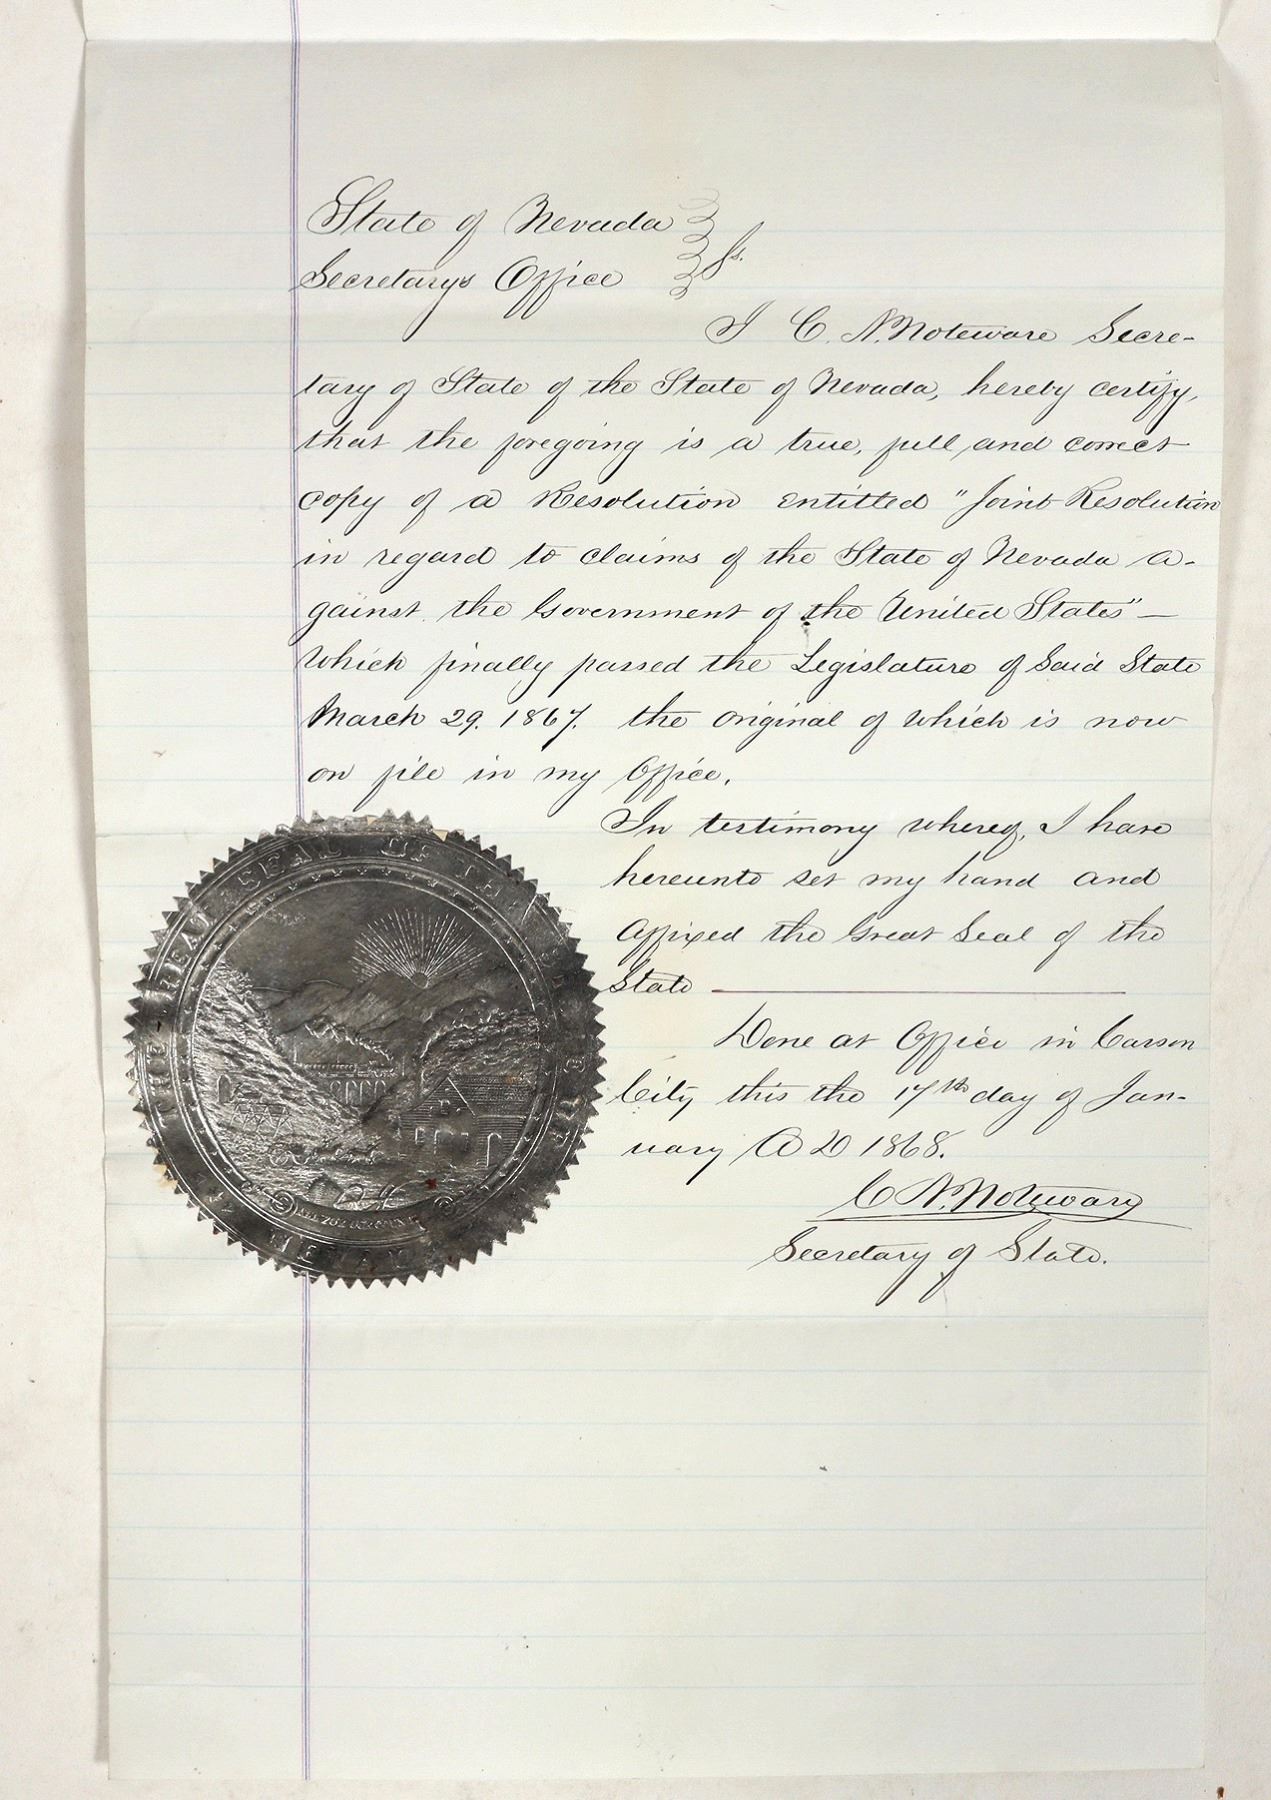 State of Nevada
Secretarys Office } Ss.
I C. N. Noteware Secre-
tary of State of the State of Nevada, hereby certify,
that the foregoing is a true, full and correct
copy of a Resolution entitled "Joint Resolution
in regard to claims of the State of Nevada a-
gainst the Government of the United States" —
Which finally passed the Legislature of Said State
March 29. 1867. the original of which is now
on file in my Office.
In testimony whereof, I have
hereunto set my hand and
affixed the Great Seal of the
State
Done at Office in Carson
City this the 17th day of Jan-
uary A D 1868.
C N. Noteware
Secretary of State.
THE GREAT SEAL OF THE STATE OF NEVADA
ALL FOR OUR COUNTRY